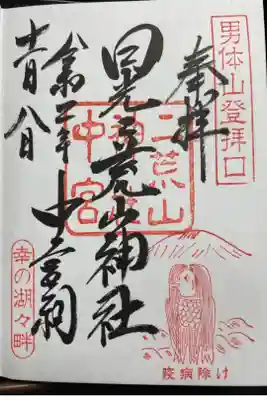 男体山登拝口
奉拝
日光二荒山神社
中宮祠
令和二年
十一月八日
二荒山
神社
中宮
幸の湖々畔
疫病除け